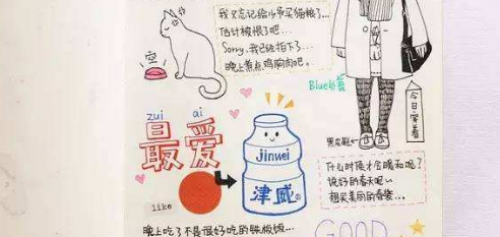 我又忘记给小爷买猫粮了...
估计被恨了吧...
Sorry,我已经拍下了...
晚上煮点鸡胸肉吧。
空
Blue
今日穿着
zui ai
最爱
jinwei
津威
like
什么时候才会暖和呢?
说好的春天呢~
想买美丽的春装...
晚上吃了不是很好吃的
GOOD